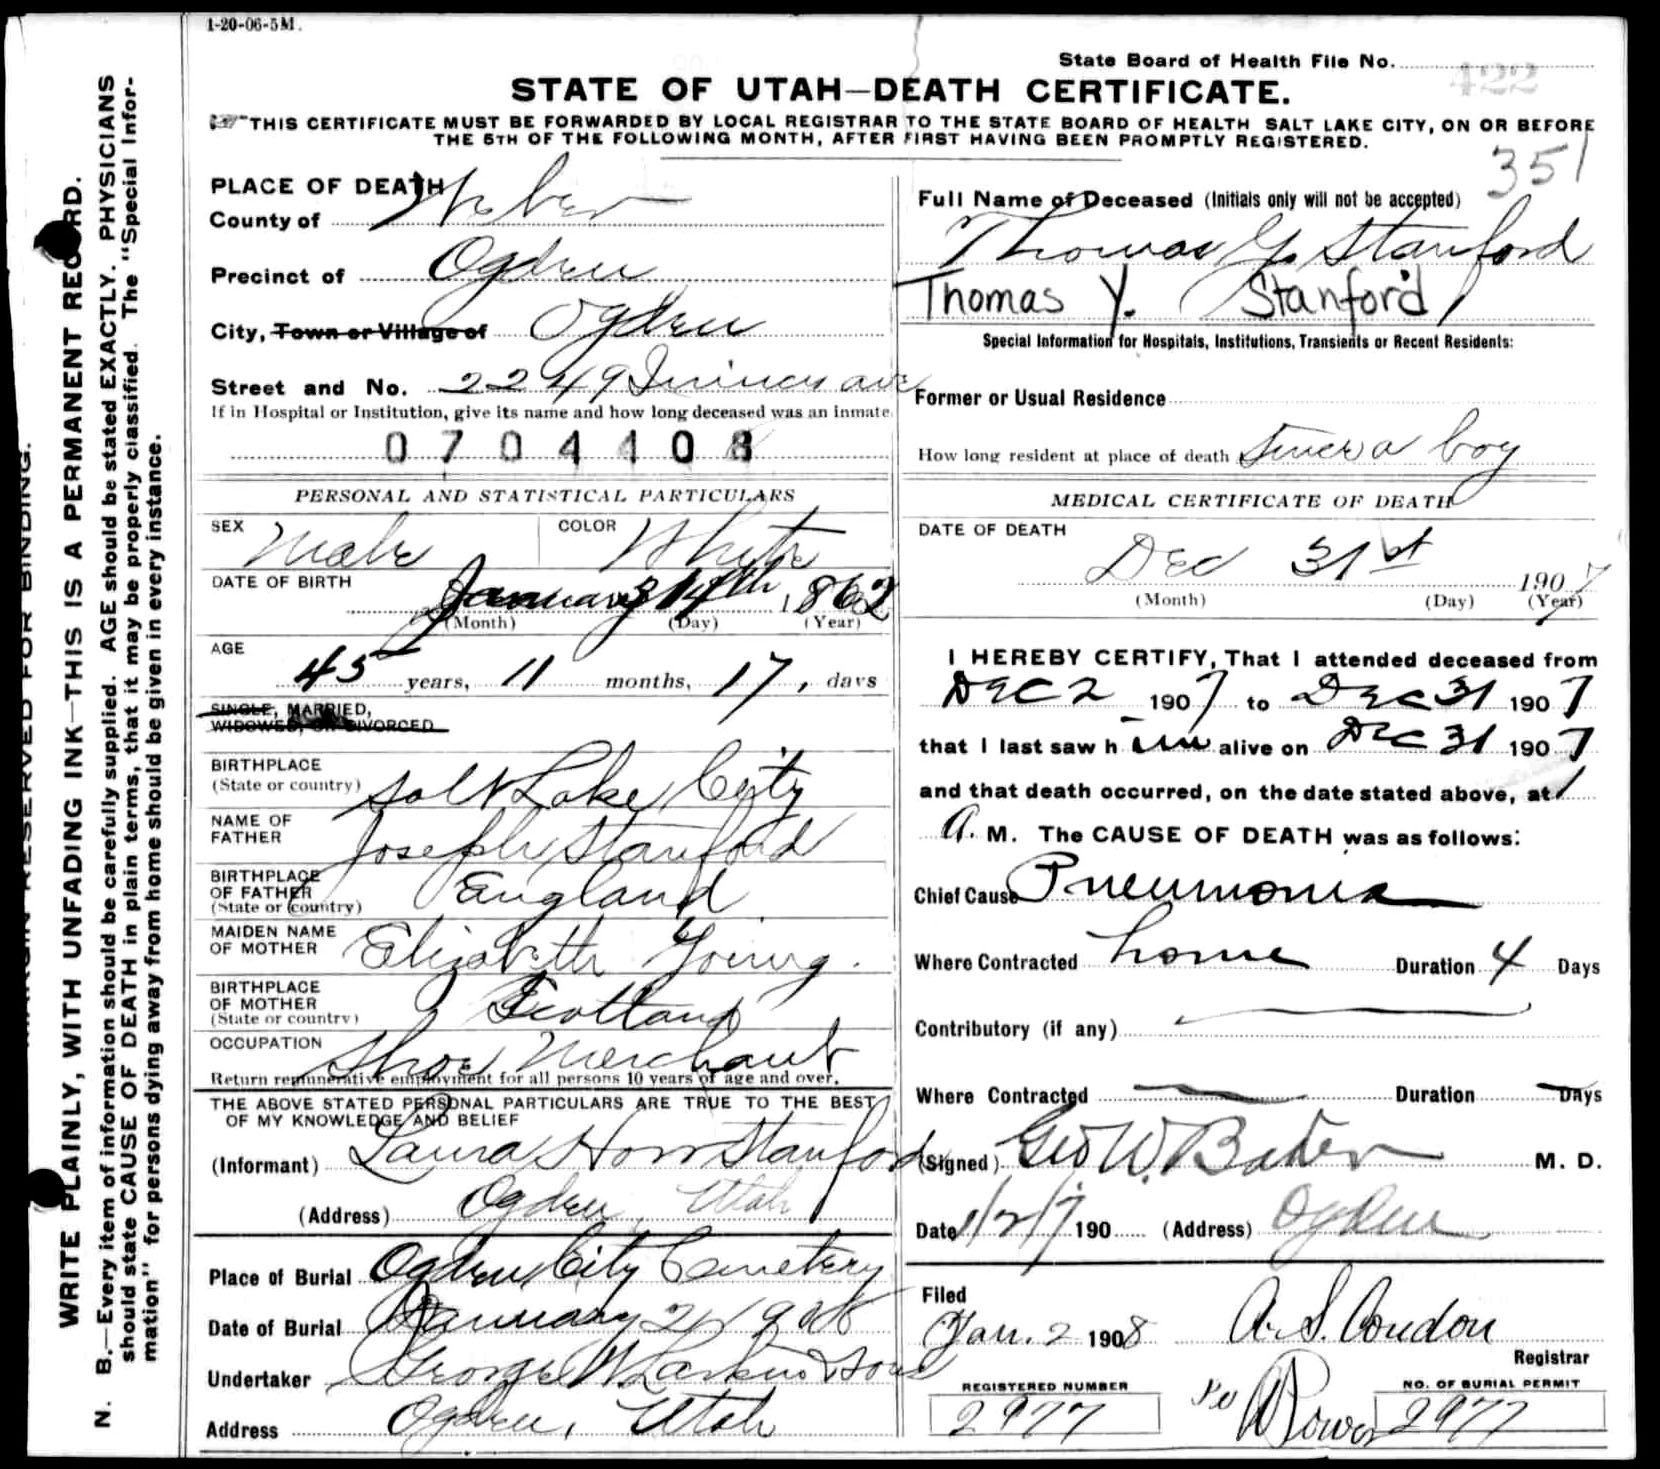 1-20-06-5M.
State Board of Health File No. 422
STATE OF UTAH—DEATH CERTIFICATE.
THIS CERTIFICATE MUST BE FORWARDED BY LOCAL REGISTRAR TO THE STATE BOARD OF HEALTH SALT LAKE CITY, ON OR BEFORE
THE 5TH OF THE FOLLOWING MONTH, AFTER FIRST HAVING BEEN PROMPTLY REGISTERED.
351
PLACE OF DEATH
County of Weber
Precinct of Ogden
City, Town or Village of Ogden
Street and No. 2249 Quincy ave
If in Hospital or Institution, give its name and how long deceased was an inmate.
0704408
PERSONAL AND STATISTICAL PARTICULARS
SEX Male COLOR White
DATE OF BIRTH January 14th 1862
(Month) (Day) (Year)
AGE
45 years, 11 months, 17, days
SINGLE, MARRIED,
WIDOWED, OR DIVORCED
BIRTHPLACE
(State or country) Salt Lake City
NAME OF
FATHER Joseph Stanford
BIRTHPLACE
OF FATHER England
(State or country)
MAIDEN NAME
OF MOTHER Elizabeth Young.
BIRTHPLACE
OF MOTHER Scotland
(State or country)
OCCUPATION Shoe Merchant
Return remunerative employment for all persons 10 years of age and over.
THE ABOVE STATED PERSONAL PARTICULARS ARE TRUE TO THE BEST
OF MY KNOWLEDGE AND BELIEF
(Informant) Laura Horr Stanford
(Address) Ogden, Utah
Place of Burial Ogden City Cemetery
Date of Burial January 2, 1908
Undertaker George W Larkin & Sons
Address Ogden, Utah
Full Name of Deceased (Initials only will not be accepted)
Thomas Y. Stanford
Thomas Y. Stanford
Special Information for Hospitals, Institutions, Transients or Recent Residents:
Former or Usual Residence
How long resident at place of death Since a boy
MEDICAL CERTIFICATE OF DEATH
DATE OF DEATH
Dec 31st 1907
(Month) (Day) (Year)
I HEREBY CERTIFY, That I attended deceased from
DEC 2 1907 to DEC 31 1907
that I last saw him alive on DEC 31 1907
and that death occurred, on the date stated above, at 1
A. M. The CAUSE OF DEATH was as follows:
Chief Cause Pneumonia
Where Contracted home Duration 4 Days
Contributory (if any)
Where Contracted Duration Days
(Signed) Geo W. Baker M. D.
Date 1/2/7 190 (Address) Ogden
Filed
Jan. 2 1908 A. S. Condon
Registrar
REGISTERED NUMBER
2977
Per A Bowen
NO. OF BURIAL PERMIT
2977
MARGIN RESERVED FOR BINDING.
WRITE PLAINLY, WITH UNFADING INK—THIS IS A PERMANENT RECORD.
N. B.—Every item of information should be carefully supplied. AGE should be stated EXACTLY. PHYSICIANS
should state CAUSE OF DEATH in plain terms, that it may be properly classified. The "Special Infor-
mation" for persons dying away from home should be given in every instance.